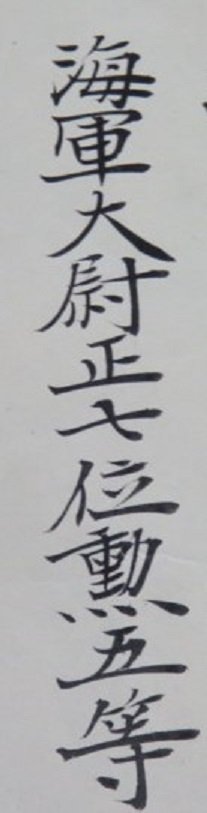 海軍大尉正七位勲五等